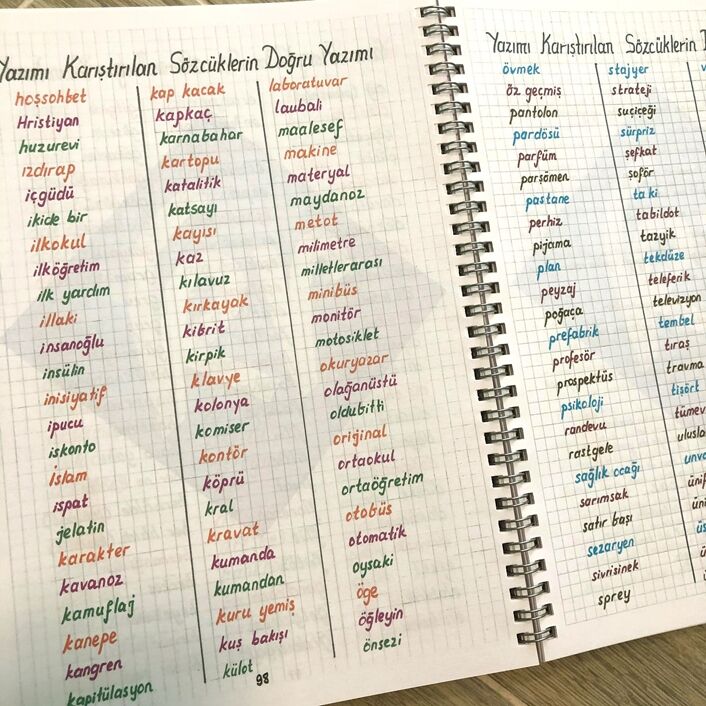 Yazımı Karıştırılan Sözcüklerin Doğru Yazımı
hoşsohbet
Hristiyan
huzurevi
ızdırap
içgüdü
ikide bir
ilkokul
ilköğretim
ilk yardım
illaki
insanoğlu
insülin
inisiyatif
ipucu
iskonto
İslam
ispat
jelatin
karakter
kavanoz
kamuflaj
kanepe
kangren
kapitülasyon
kap kacak
kapkaç
karnabahar
kartopu
katalitik
katsayı
kayısı
kaz
kılavuz
kırkayak
kibrit
kirpik
klavye
kolonya
komiser
kontör
köprü
kral
kravat
kumanda
kumandan
kuru yemiş
kuş bakışı
külot
laboratuvar
laubali
maalesef
makine
materyal
maydanoz
metot
milimetre
milletlerarası
minibüs
monitör
motosiklet
okuryazar
olağanüstü
oldubitti
orijinal
ortaokul
ortaöğretim
otobüs
otomatik
oysaki
öge
öğleyin
önsezi
98
Yazımı Karıştırılan Sözcüklerin
övmek
öz geçmiş
pantolon
pardösü
parfüm
parşömen
pastane
perhiz
pijama
plan
peyzaj
poğaça
prefabrik
profesör
prospektüs
psikoloji
randevu
rastgele
sağlık ocağı
sarımsak
satır başı
sezaryen
sivrisinek
sprey
stajyer
strateji
suçiçeği
sürpriz
şefkat
şoför
ta ki
tabildot
tazyik
tekdüze
teleferik
televizyon
tembel
tıraş
travma
tişört
tümev
ulusla
unva
ünif
üni
üs